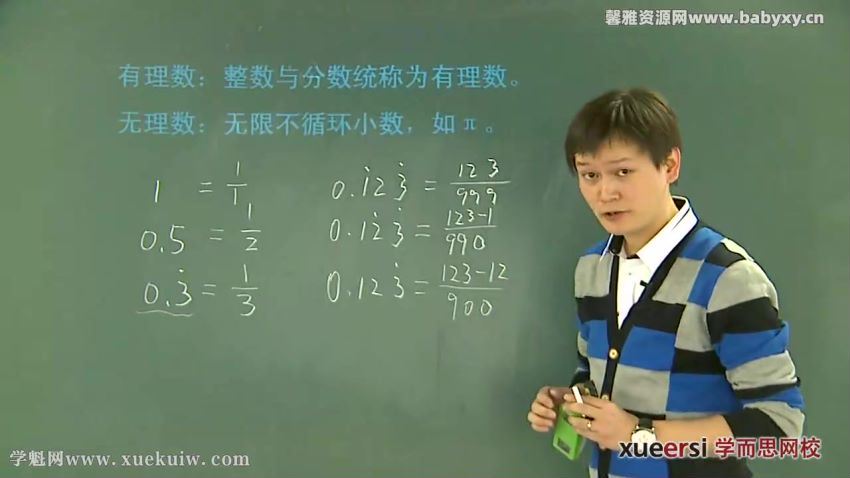 馨雅资源网www.babyxy.cn
有理数：整数与分数统称为有理数。
无理数：无限不循环小数，如π。
1 = 1/1
0.5 = 1/2
0.3̇ = 1/3
0.1̇23̇ = 123/999
0.12̇3̇ = 123-1/990
0.123̇ = 123-12/900
xueersi 学而思网校
学魁网www.xuekuiw.com